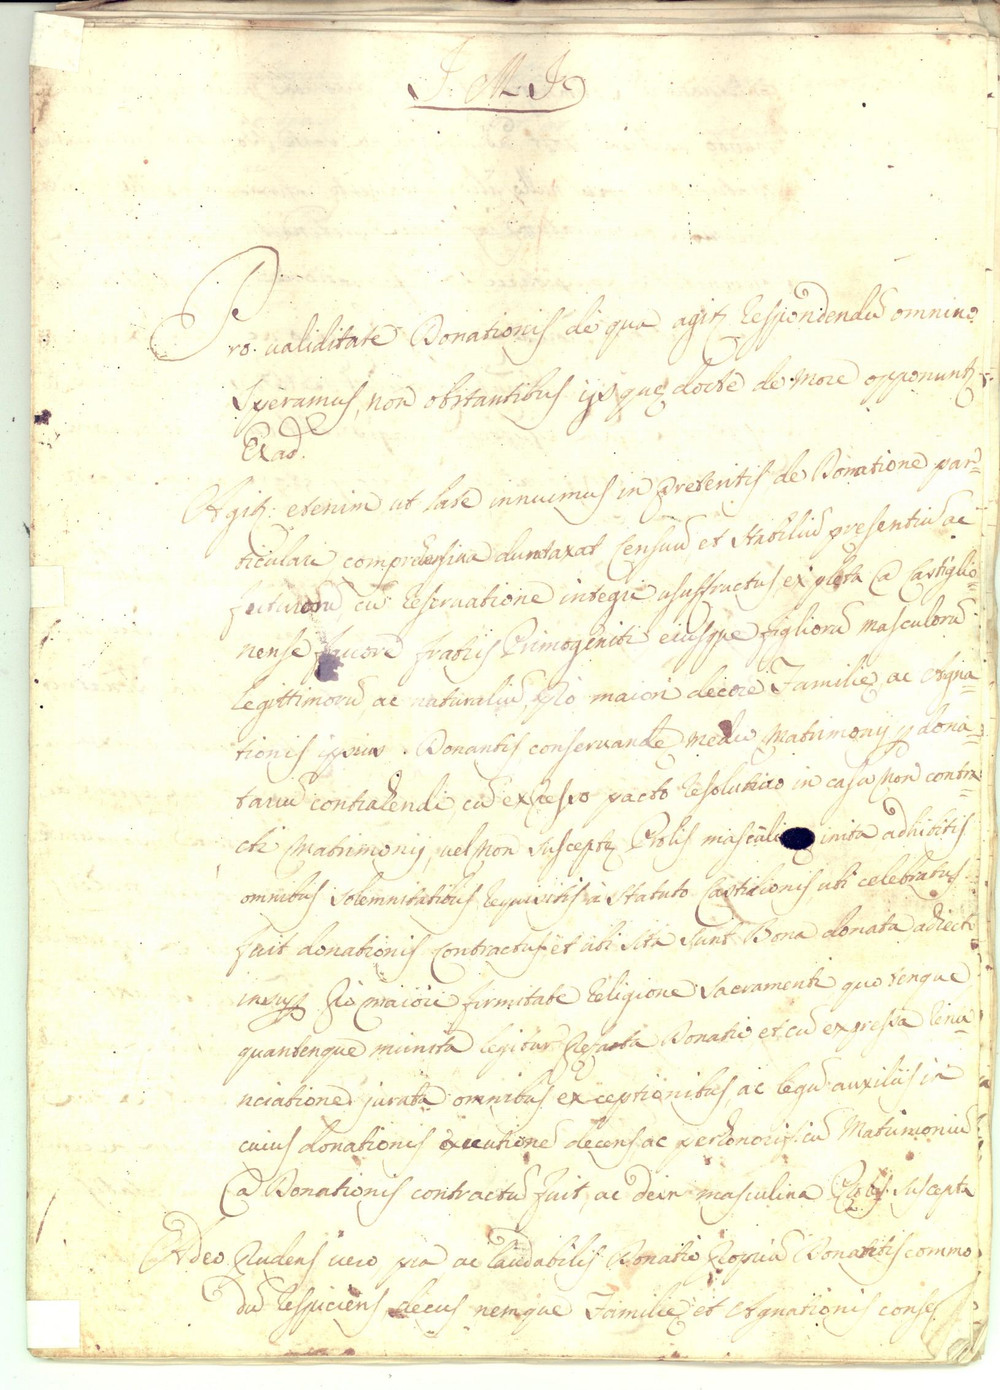 J. M. J.
Pro validitate Donationis de qua agitr respondendũ omnino
speramus, non obstantibus ijs que docte de more opponuntr
Ex ad.o
Agitr etenim ut late innuimus in preteritis de Donatione par=
ticulari comprehensiva dumtaxat Censuũ et Stabiliũ presentiũ ac
futurorũ cũ reservatione integri ususfructus, expleta a Castiglio=
nense favore fratris Primogeniti eiusque figliorũ masculorũ
legittimorũ ac naturaliũ pro maiori decore Familie, ac Agna=
tionis ipsius Donantis conservande medio Matrimonij p dona=
tariũ contrahendi cũ expresso pacto resolutivo in casu non contra=
cti Matrimonij, vel non suscepte Prolis masculine inita adhibitis
omnibus solemnitatibus requisitis a Statuto Castilionis, ubi celebratus
fuit donationis contractus et ubi sita sunt Bona donata adiecta
insuper pro maiori firmitate religione Sacramenti quo tenque
quantenque munita legitur Donatio et cũ expressa renu=
nciatione jurata omnibus exceptionibus, ac legũ auxiliis in
cuius donationis executione decens ac perhonorif. cũ Matrimoniũ
a Donationis contractũ fuit, ac dein masculina Proles suscepta
Adeo Prudens vero pia ac laudabilis Donatio propriũ Donantis commo
dũ respiciens decus nemque Familie, et Agnationis conser